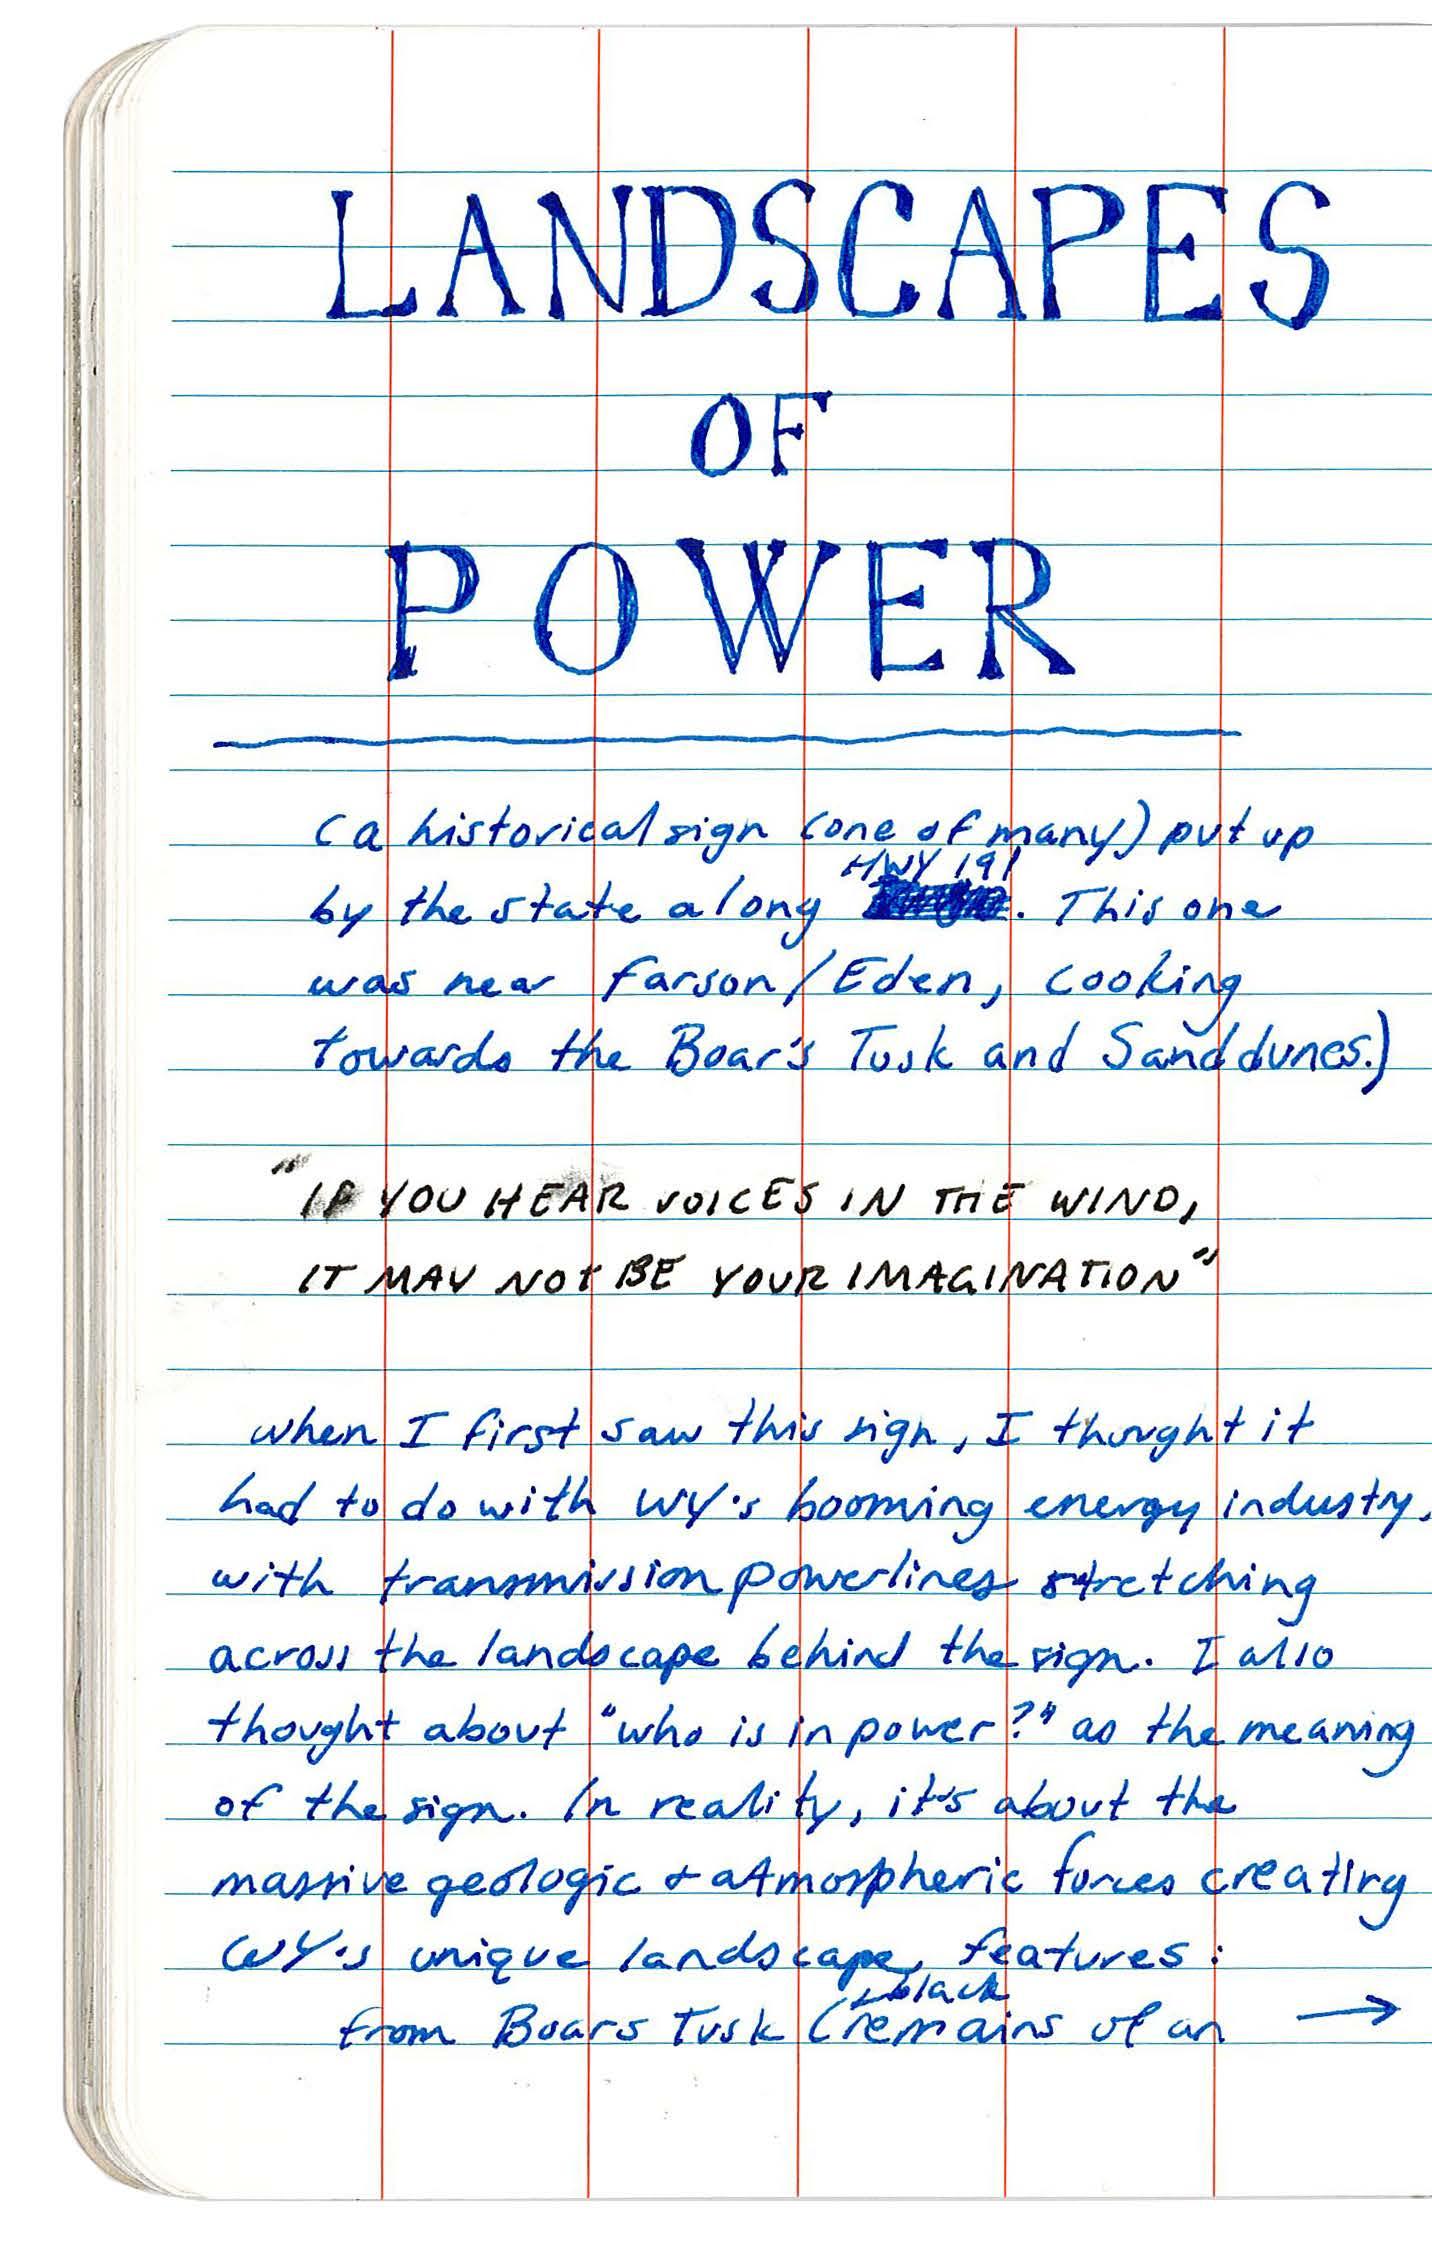 LANDSCAPES
OF
POWER
(a historical sign (one of many) put up
HWY 191
by the state along . This one
was near Farson/Eden, looking
towards the Boar's Tusk and Sanddunes.)
"IF YOU HEAR VOICES IN THE WIND,
IT MAY NOT BE YOUR IMAGINATION"
when I first saw this sign, I thought it
had to do with WY's booming energy industry,
with transmission powerlines stretching
across the landscape behind the sign. I also
thought about "who is in power?" as the meaning
of the sign. In reality, it's about the
massive geologic & atmospheric forces creating
WY's unique landscape features:
black
from Boars Tusk (remains of an →